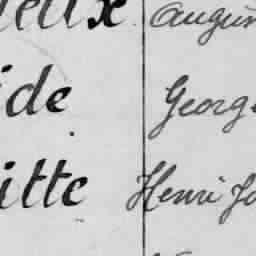 eux Augus
ide Georg
itte Henri Jo